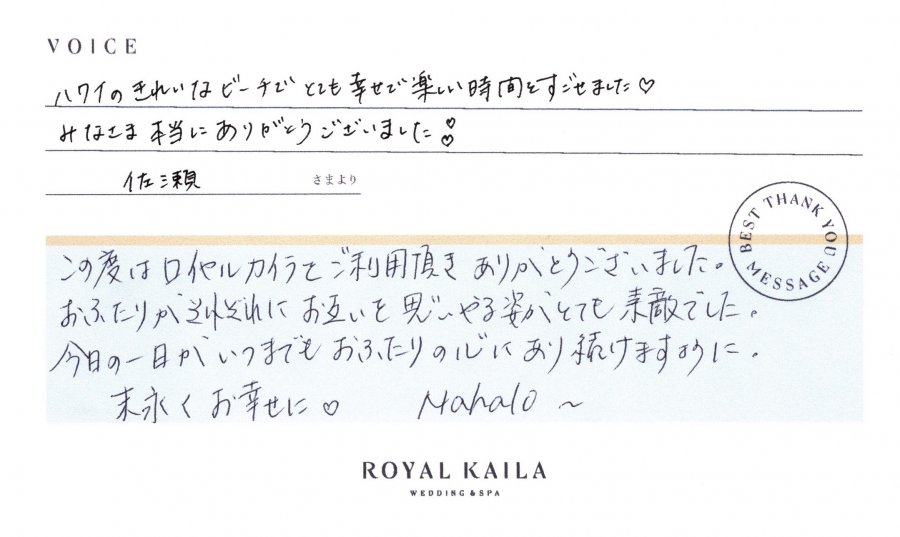 VOICE
ハワイのきれいなビーチでとても幸せで楽しい時間をすごせました♡
みなさま本当にありがとうございました
佐瀬 さまより
BEST THANK YOU MESSAGE
この度はロイヤルカイラをご利用頂きありがとうございました。
おふたりがそれぞれにお互いを思いやる姿がとても素敵でした。
今日の一日がいつまでもおふたりの心にあり続けますように。
末永くお幸せに♡ Mahalo ~
ROYAL KAILA
WEDDING & SPA